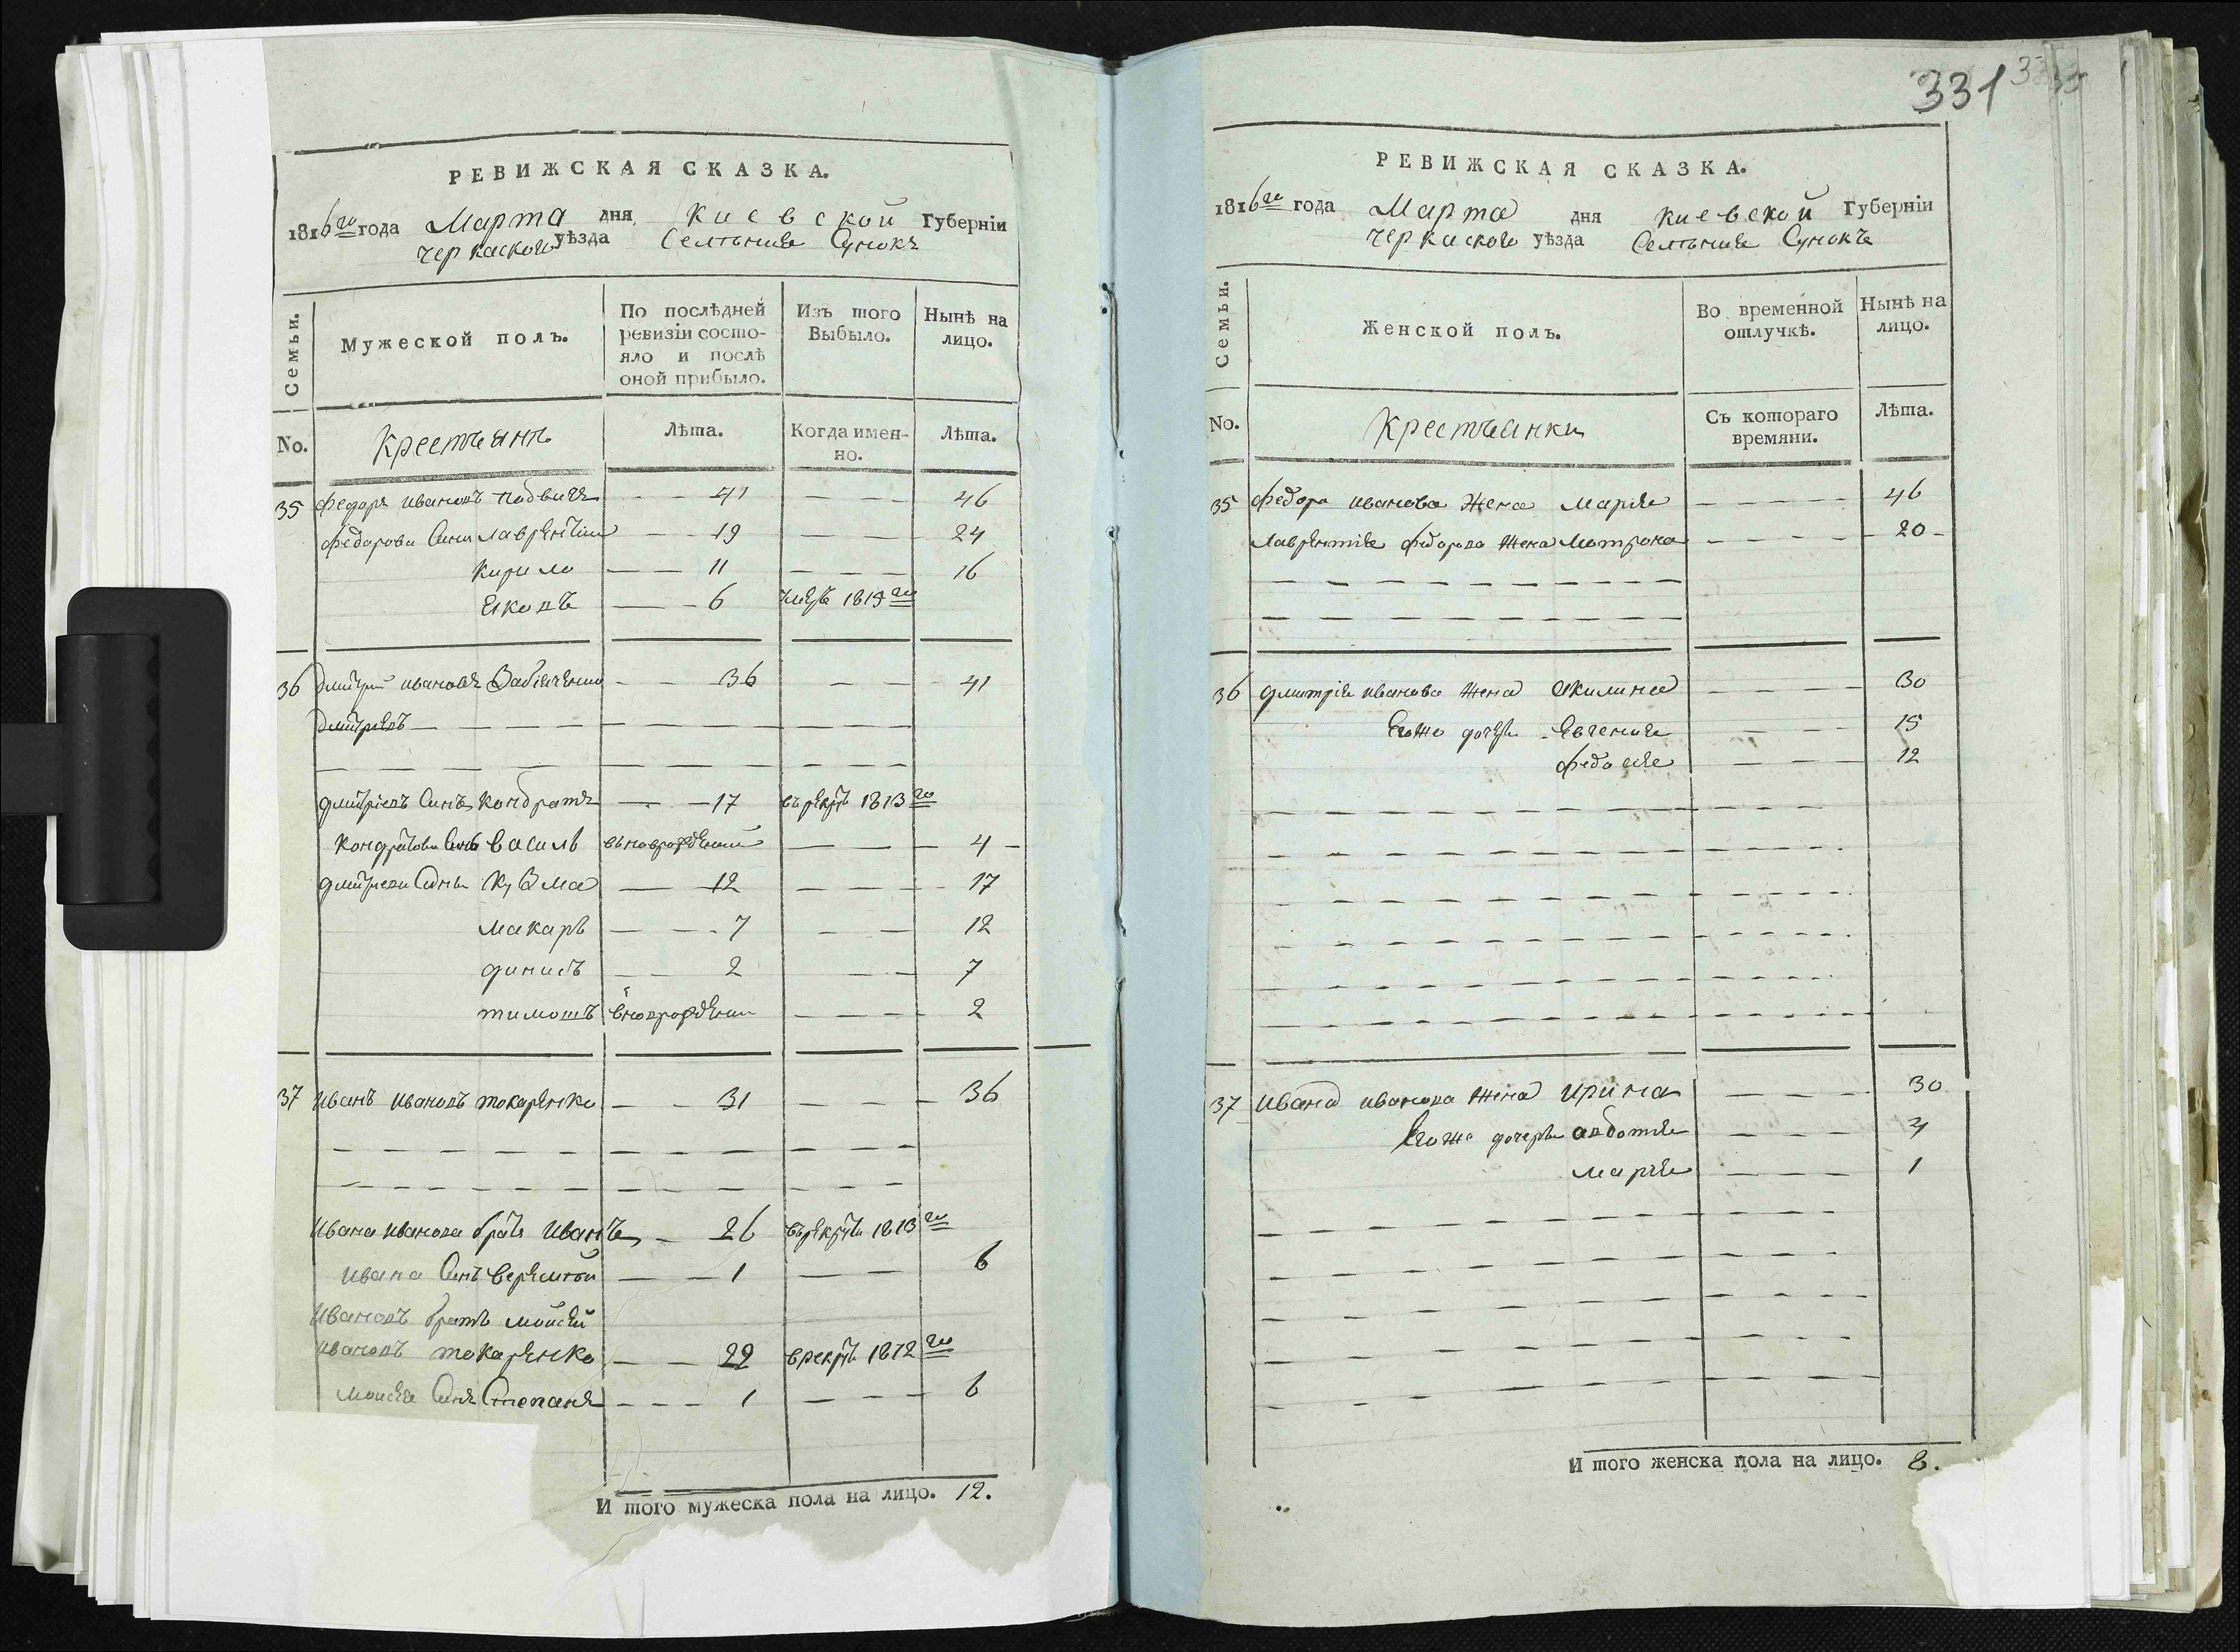 РЕВИЖСКАЯ СКАЗКА.
1816го года Марта дня Киевской Губернiи
Черкаского уѣзда Селѣния Сунокъ
Семьи.
Мужеской полъ.
По послѣдней ревизiи состояло и послѣ оной прибыло.
Изъ того Выбыло.
Нынѣ на лицо.
No. Крестьянъ Лѣта. Когда именно. Лѣта.
35 Федоръ Ивановъ 41 46
Федорови Сини Лаврентий 19 24
Кирило 11 16
Яковъ 6 1815го
36 Дмитрий Ивановъ 36 41
Дмитриевъ
Дмитриевъ Синъ Кондратъ 17 въ рекрути 1813го
Кондратови Синъ Василь вьноврожденний 4
Дмитриеви Сини Кузма 12 17
Макаръ 7 12
Динисъ 2 7
Тимошъ вноврожденни 2
37 Иванъ Ивановъ Токаренко 31 36
Ивана Иванова братъ Иванъ 26 въ рекрути 1813го
Ивана Синъ 1 6
Ивановъ братъ Мойсей
Ивановъ Токаренко 22 врекрути 1812го
Моисея Синъ Степанъ 1 6
И того мужеска пола на лицо. 12.
331
РЕВИЖСКАЯ СКАЗКА.
1816го года Марта дня Киевской Губернiи
Черкаского уѣзда Селѣния Сунокъ
Семьи.
Женской полъ.
Во временной отлучкѣ.
Нынѣ на лицо.
No. Крестьянки Съ котораго времяни. Лѣта.
35 Федора Иванова Жена Мария 46
Лаврентия Федорова Жена Мотрона 20
36 Дмитрия Иванова Жена Акилина 30
Егоже дочери Евгения 15
Федосия 12
37 Ивана Иванова Жена Ирина 30
Егоже дочери Авдотия 4
Мария 1
И того женска пола на лицо. 8.